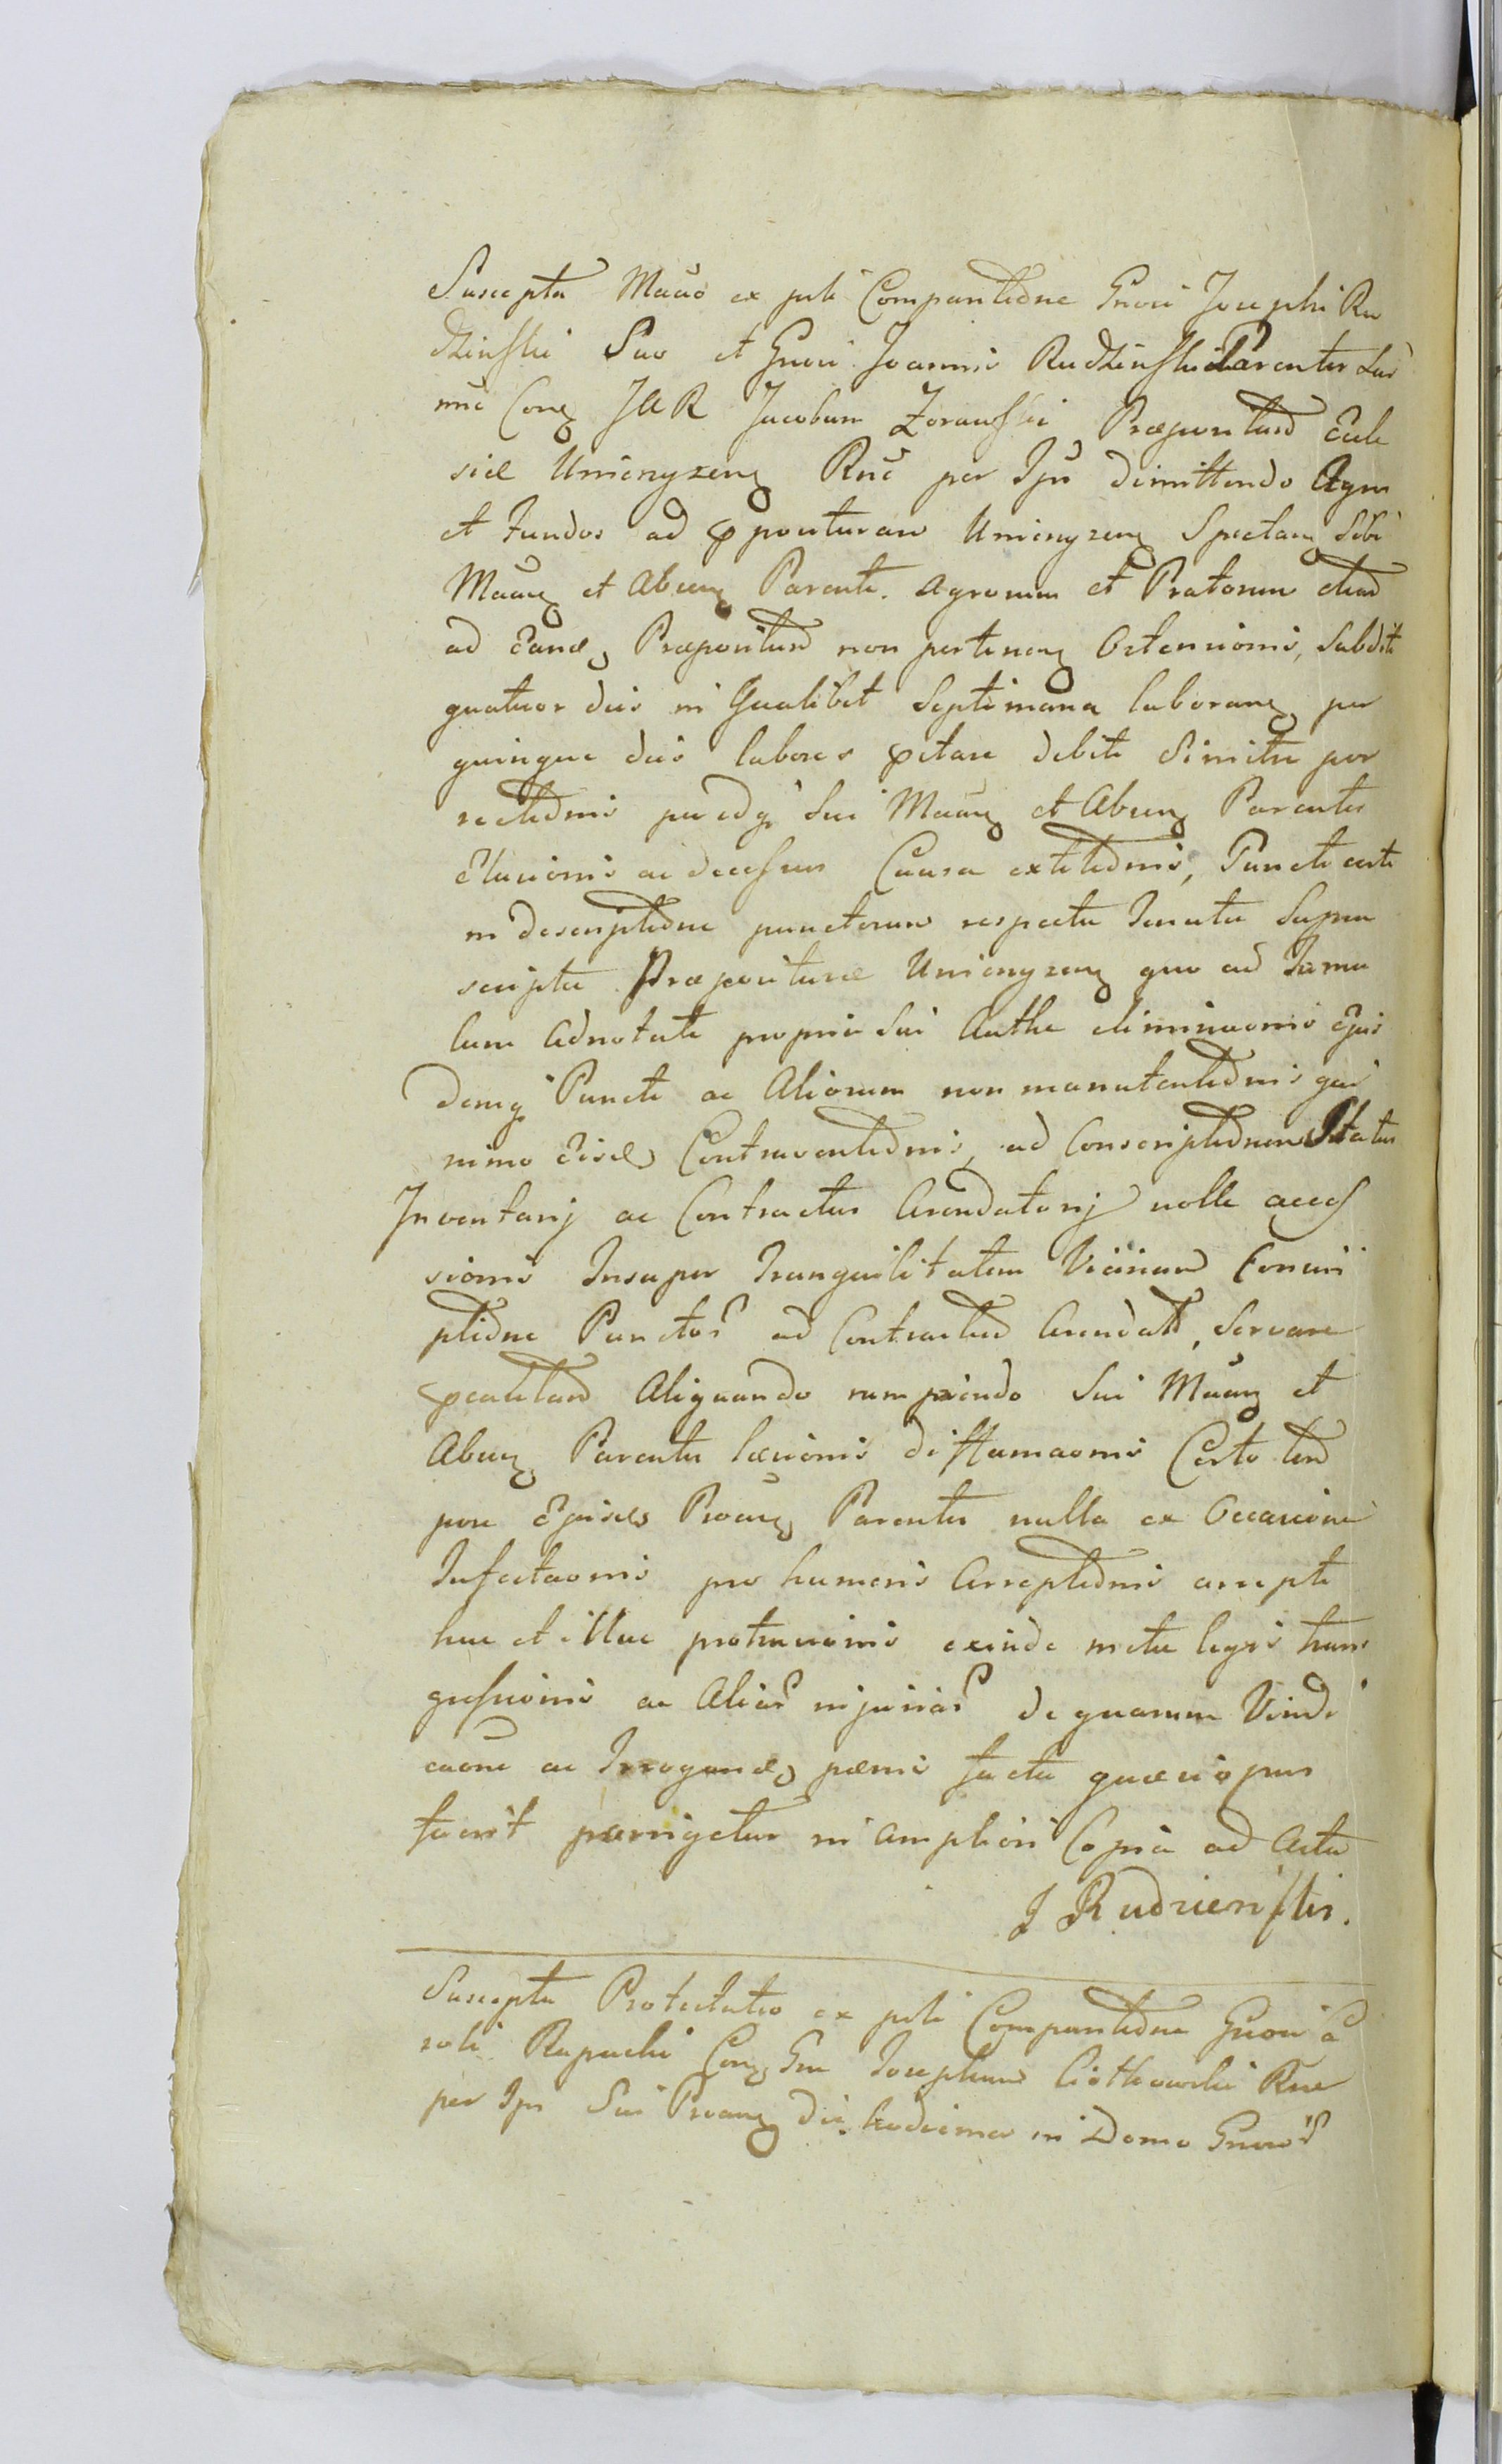 Suscepta Mãnõ ex psti Comparitõne Gnõsi Josephi Ru
dzinski Suo et Gnosi Joannis Rudzinski Parentis Sui
nnẽ Conq JAR Jacobum Zorawski Præpositum Eccle
siæ Unienyzenq Rnẽ per Ipsũ dimittendo Agros
et Fundos ad pposituram Unienyzenq Spectanq Sibi
Manq et Absenq Parenti. Agrorum et Pratorum etiam
ad eand Præposituram non pertinenq Ostensionis, Subditi
quatuor dies in Qualibet Septimana laboranq per
quinque dies labores pstare debite Simitu per
rectiõnis pæedq Sui Manq et Absenq Parentis
Elusionis ac decessus Causa extitiõnis, Puncti certi
in descriptiõne punctorum respectu Senatu Supra
scriptæ Præposituræ Unienyzenq quo ad Famu
lum Adnotati proprie Sui Authe eliminaonis Ejus
demq Puncti ac Aliorum non manutentiõnis qui
nimo Eisd Contraventiõnis, ad Conscriptiõnem Status
Inventarij ac Contractus Arendatorij nolle acces
sionis Insuper Tranquilitatem Vicinam Conscri
ptiõne Punctor ad Contractum Arendat, Servare
pcautam Aliquando rumpiendo Sui Manq et
Absenq Parentis læsionis diffamaonis Certo tem
pore Ejusd Proanq Parentis nulla ex Occasione
Infectaonis pro humeris Arreptiõnis arrepti
huc et illuc protrusionis exinde metu legis trans
gressionis ac Aliar injuriar de quarum Vindi
caone ac Irrogand pænis facta quævis opus
fuerit porrigetur in ampliori Copia ad Acta
J Rudzienski.
Suscepta Protestatio ex psti Comparitiõne Gnosi Ca
roli Rapacki Conq Gnm Josephum Ciotkowski Rne
per Ips Sui Proanq die hodierna in Domo Gnosor